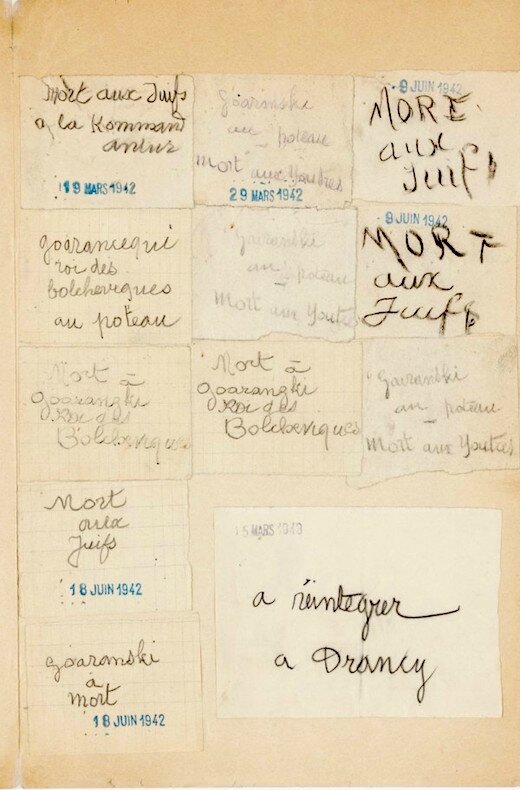 Mort aux Juifs
a la Kommand
antur
19 MARS 1942
goaronski
au poteau
Mort aux Youtres
29 MARS 1942
9 JUIN 1942
MORE
aux
Juifs
goarancequi
roi des
bolcheviques
au poteau
goaronski
au poteau
Mort aux Youtres
9 JUIN 1942
MORT
aux
Juifs
Mort à
goarangki
Roi des
Bolcheviques
Mort à
goarangki
Roi des
Bolcheviques
goaranski
au poteau
Mort aux Youtres
Mort
aux
Juifs
18 JUIN 1942
MARS
a réintegrer
a Drancy
goaronski
à
mort
18 JUIN 1942